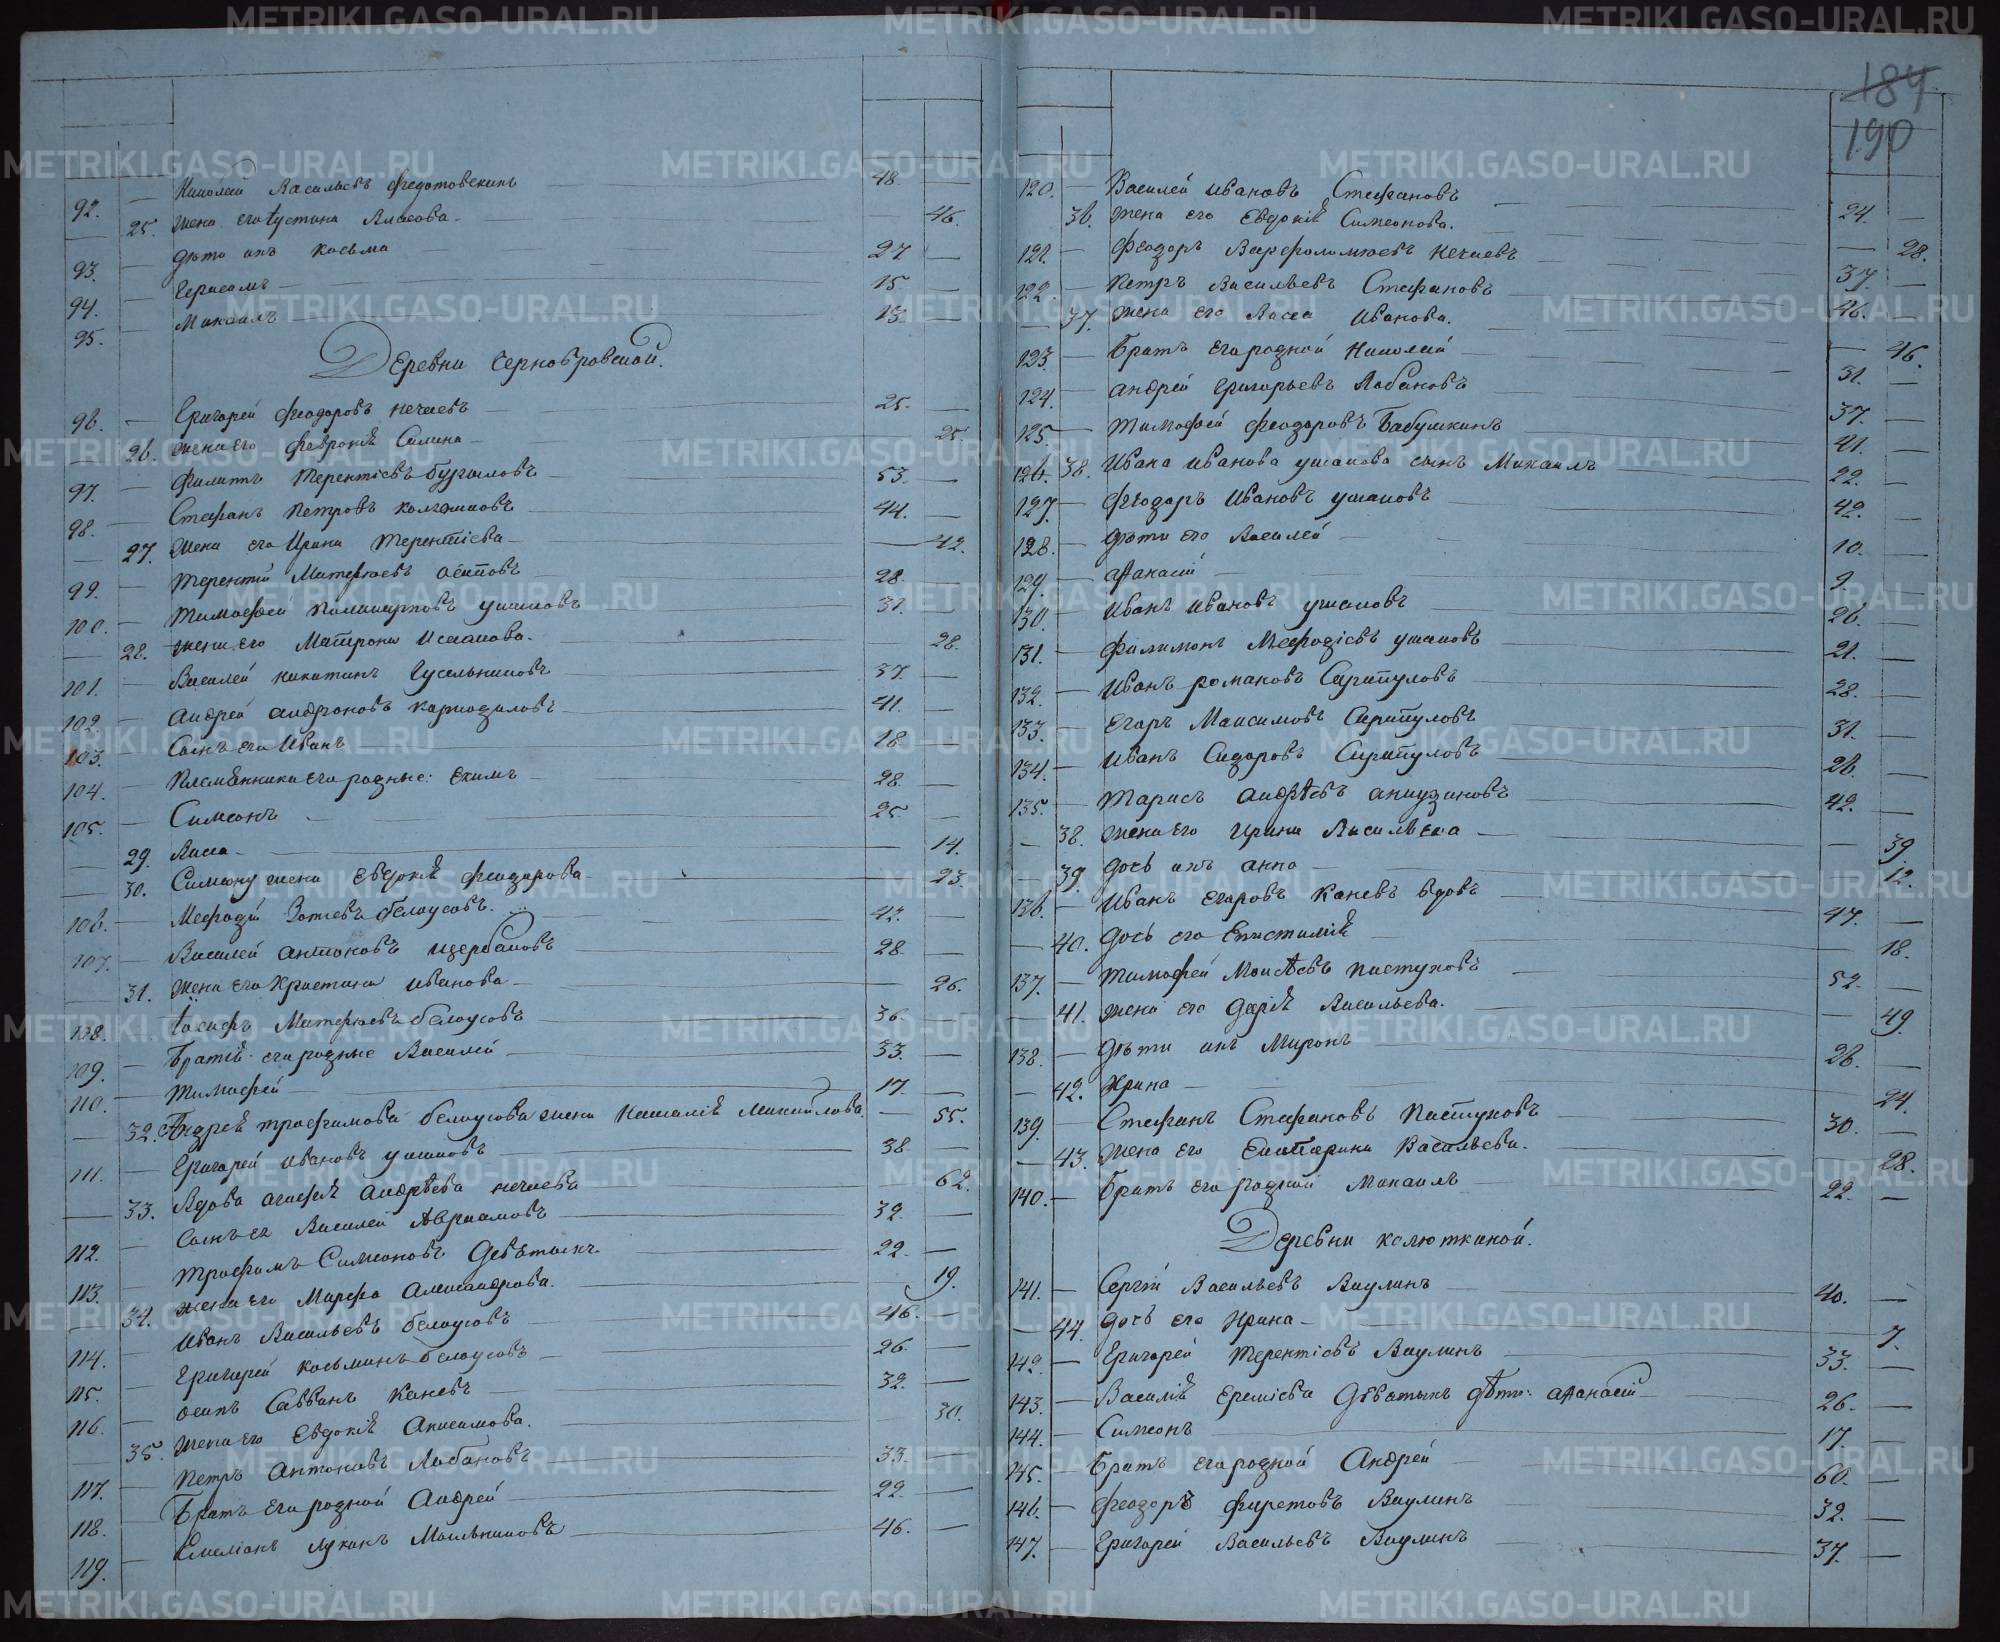 184
190
92. — Николай Васильевъ Федотовскихъ — 48 —
— 25. жена его Устина Власова — — 46.
93. — дѣти ихъ Косьма — 27 —
94. — Герасимъ — 15 —
95. — Михаилъ — 13 —
Деревни Чернобровской.
96. — Григорей Феодоровъ Нечаевъ — 25. —
— 26. жена его Феврония Силина — — 25.
97. — Филиппъ Терентіевъ — 53. —
98. — Стефанъ Петровъ — 44. —
— 27. жена его Ирина Терентіева — — 42.
99. — Терентій Матфѣевъ Осиповъ — 28. —
100. — Тимофей Поликарповъ Ушаковъ — 31. —
— 28. жена его Матрона Исакова. — — 28.
101. — Василей Никитинъ Гусельниковъ — 37. —
102. — Андрей Андроновъ — 41. —
103. — Сынъ его Иванъ — 18 —
104. — Племянники его родные: Екимъ — 28. —
105. — Симеонъ — 25. —
— 29. Васса — — 14.
— 30. Симеону жена Евдокія Феодорова — — 23.
106. — Мефодій Зотѣевъ Белоусовъ. — 42. —
107. — Василей Антоновъ Щербаковъ — 28. —
— 31. жена его Христина Иванова — — 26.
108. — Іосифъ Матфѣевъ Белоусовъ — 36. —
109. — Братія его родные Василей — 33. —
110. — Тимофей — 17. —
— 32. Андрея Трофимова Белоусова жена Наталія Михайлова. — 55.
111. — Григорей Ивановъ Ушаковъ — 38. —
— 33. Вдова Агафія Андрѣева Нечаева — — 62.
112. — Сынъ ея Василей Авраамовъ — 32. —
113. — Трофимъ Симеоновъ Девятыхъ. — 22. —
— 34. жена его Марфа Александрова. — — 19.
114. — Иванъ Васильевъ Белоусовъ — 46. —
115. — Григорей Косьминъ Белоусовъ — 26. —
116. — Осипъ Саввинъ Каневъ — 32. —
— 35. жена его Евдокія Анисимова. — — 30.
117. — Петръ Антоновъ Лобановъ — 33. —
118. — Братъ его родной Андрей — 22. —
119. — Емеліанъ Лукинъ Мальниковъ — 46. —
120. — Василей Ивановъ Стефановъ — 24. —
— 36. жена его Евдокія Симеонова. — — 28.
121. — Феодоръ Варфоломѣевъ Нечаевъ — 37. —
122. — Петръ Васильевъ Стефановъ — 46. —
— 37. жена его Васса Иванова. — — 46.
123. — Братъ его родной Николай — 31. —
124. — Андрей Григорьевъ Лобановъ — 37. —
125. — Тимофей Феодоровъ Бабушкинъ — 41. —
126. 38. Ивана Иванова Ушакова сынъ Михаилъ — 22. —
127. — Феодоръ Ивановъ Ушаковъ — 42. —
128. — дѣти его Василей — 10. —
129. — Афанасій — 9. —
130. — Иванъ Ивановъ Ушаковъ — 26. —
131. — Филимонъ Мефодіевъ Ушаковъ — 21. —
132. — Иванъ Романовъ Сарапуловъ — 28. —
133. — Егоръ Максимовъ Сарапуловъ — 31. —
134. — Иванъ Сидоровъ Сарапуловъ — 28. —
135. — Тарасъ Андрѣевъ — 42. —
— 38. жена его Ирина Васильева — — 39.
— 39. дочь ихъ Анна — — 12.
136. — Иванъ Егоровъ Каневъ вдовъ — 47. —
— 40. дочь его Епистимія — — 18.
137. — Тимофей Моисѣевъ Пастуховъ — 52. —
— 41. жена его Дарія Васильева. — — 49.
138. — Дѣти ихъ Миронъ — 26. —
— 42. Ирина — — 24.
139. — Стефанъ Стефановъ Пастуховъ — 30. —
— 43. жена его Екатерина Васильева. — — 28.
140. — Братъ его родной Михаилъ — 22. —
Деревни Колюткиной.
141. — Сергій Васильевъ Ваулинъ — 40. —
— 44. дочь его Ирина — — 7.
142. — Григорей Терентіевъ Ваулинъ — 33. —
143. — Василія Еремѣева Девятыхъ дѣти: Афанасій — 26. —
144. — Симеонъ — 17. —
145. — Братъ его родной Андрей — 60. —
146. — Феодоръ Фаретовъ Ваулинъ — 32. —
147. — Григорей Васильевъ Ваулинъ — 37. —